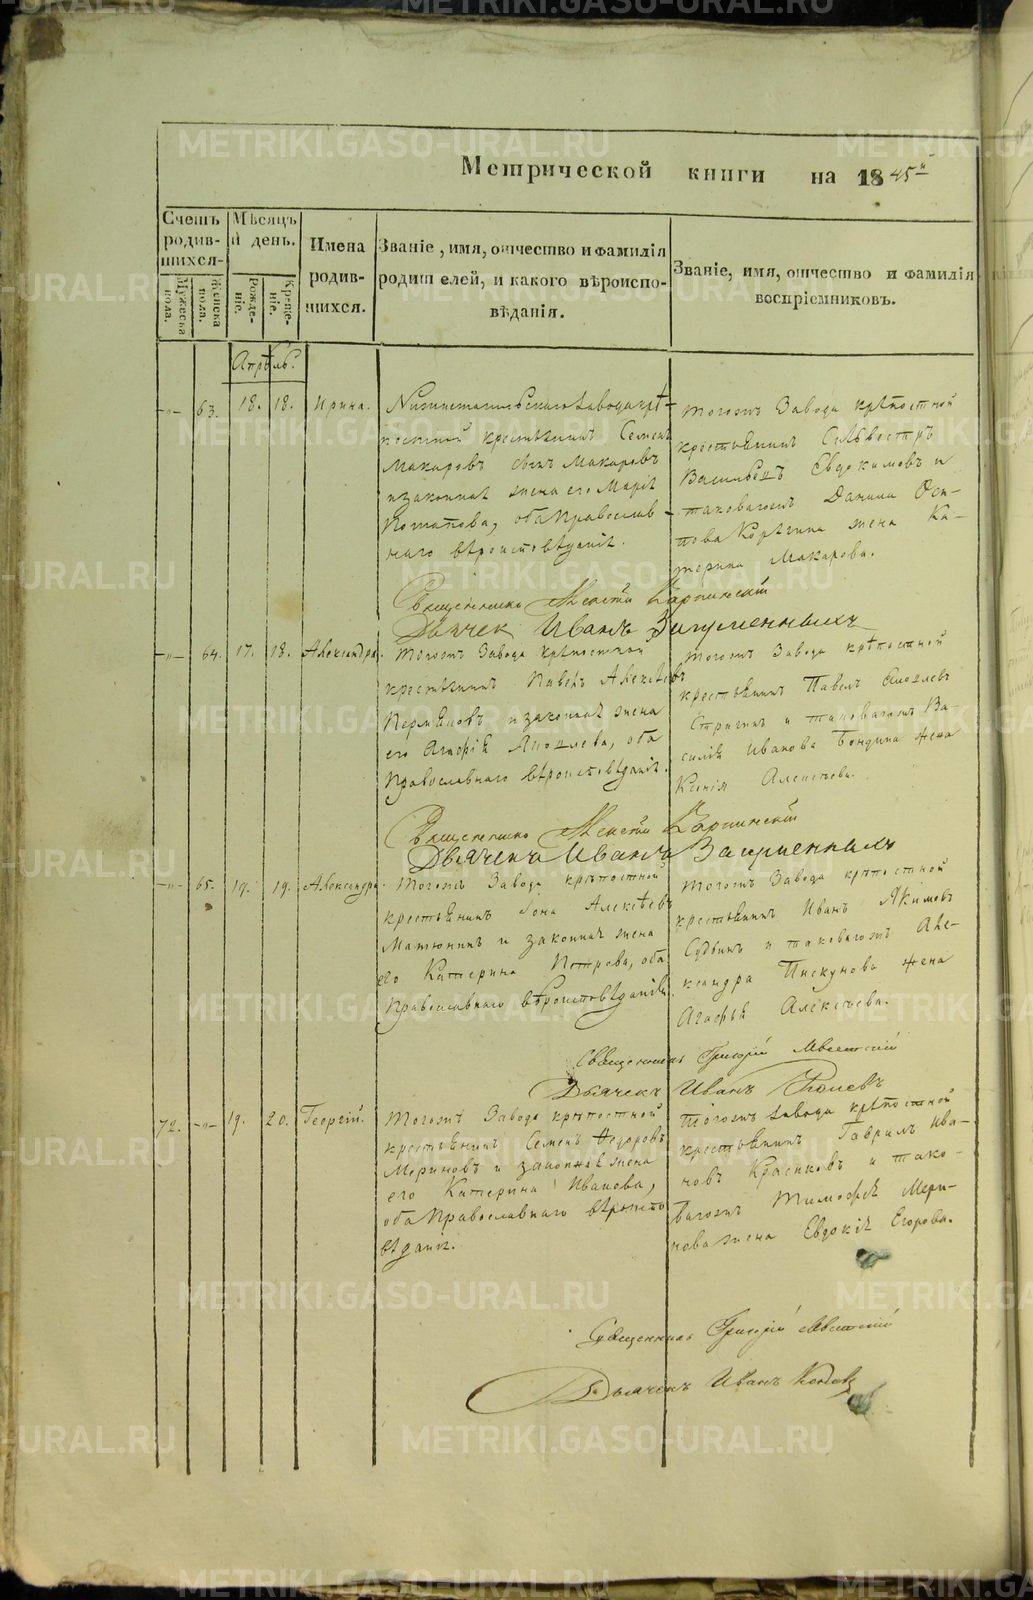 METRIKI.GASO-URAL.RU
Метрической книги на 1845й
Счетъ родив-шихся.
Мѣсяцъ и день.
Имена родив-шихся.
Званіе, имя, отчество и фамилія родителей, и какого вѣроиспо-вѣданія.
Званіе, имя, отчество и фамилія воспріемниковъ.
Мужеска пола.
Женска пола.
Рожде-ніе.
Креще-ніе.
Апрѣль.
-"- 63. 18. 18. Ирина.
Нижнетагильскаго завода крѣ-
постной крестьянинъ Семенъ
Макаровъ сынъ Макаровъ
и законная жена его Марія
Потапова, оба Православ-
наго вѣроисповѣданія.
тогожъ Завода крѣпостной
крестьянинъ Сильвестръ
Васильевъ Евдокимовъ и
таковагожъ Данила Оси-
пова Корѣгина жена Ка-
терина Макарова.
Священникъ Карпинскій
Дьячекъ Иванъ Загуменныхъ
-"- 64. 17. 18. Александра.
Тогожъ Завода крѣпостной
крестьянинъ Павелъ Алексѣевъ
и законная жена
его Яковлева, оба
Православнаго вѣроисповѣданія.
Тогожъ Завода крѣпостной
крестьянинъ Павелъ Яковлевъ
Стригинъ и таковагожъ Ва-
силія Иванова Бондина жена
Ксенія Алексѣева.
Священникъ Карпинскій
Дьячекъ Иванъ Загуменныхъ
-"- 65. 19. 19. Александра.
Тогожъ Завода крѣпостной
крестьянинъ Алексѣевъ
Матюнинъ и законная жена
его Катерина Петрова, оба
Православнаго вѣроисповѣданія.
Тогожъ Завода крѣпостной
крестьянинъ Иванъ Якимовъ
Судьинъ и таковагожъ Але-
ксандра Пискунова жена
Агафья Алексѣева.
Священникъ Григорій
Дьячекъ Иванъ
72. -"- 19. 20. Георгій.
Тогожъ Завода крѣпостной
крестьянинъ Семенъ Ѳедоровъ
Мериновъ и законная жена
его Катерина Иванова,
оба Православнаго вѣроиспо
вѣданія.
Тогожъ завода крѣпостной
крестьянинъ Гаврилъ Ива-
новъ Красиковъ и тако-
вагожъ Тимофея Мери-
нова жена Евдокія Егорова.
Священникъ Григорій
Дьячекъ Иванъ